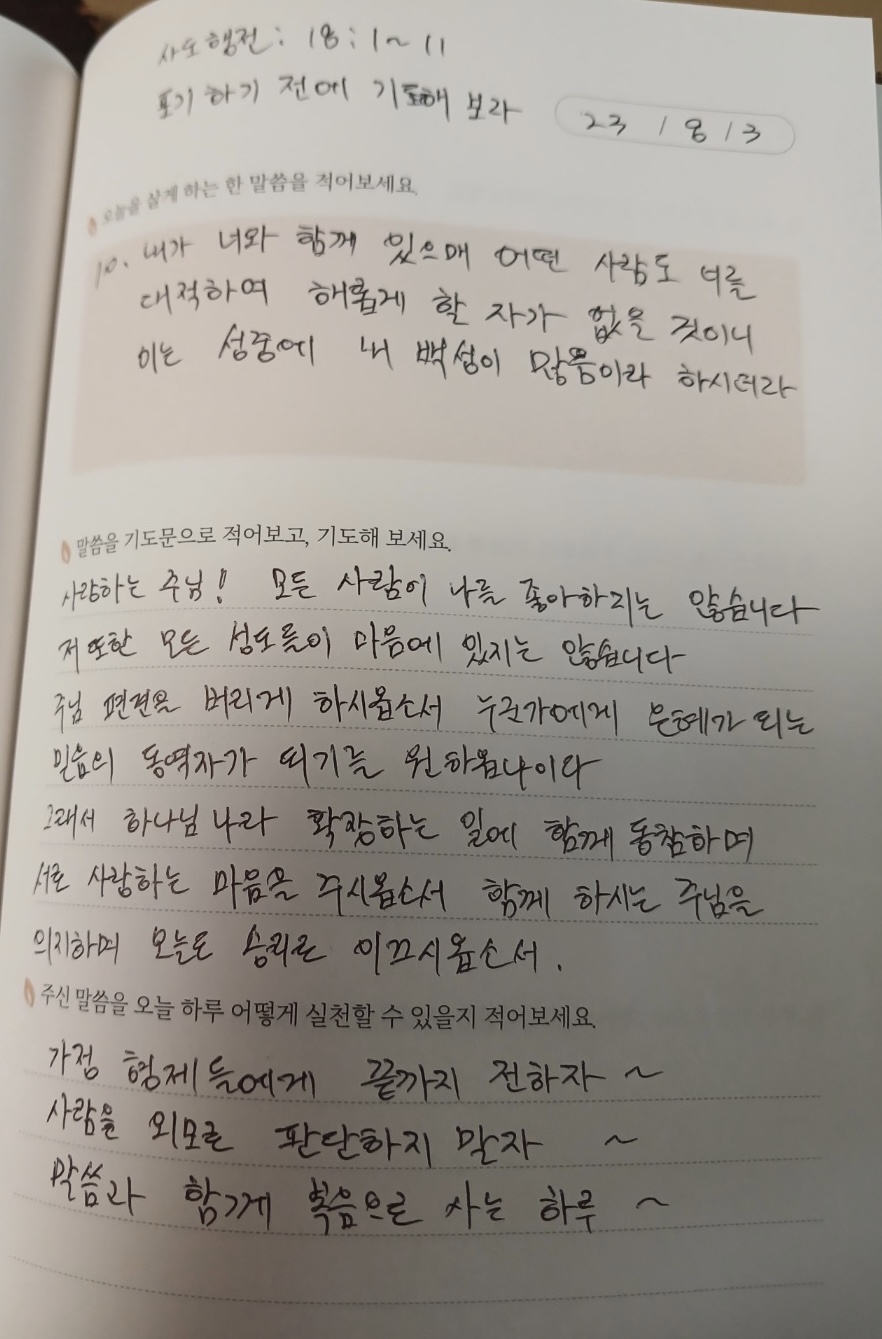 사도행전: 18:1~11
포기하기 전에 기도해 보라
23 / 8 / 3
오늘을 살게 하는 한 말씀을 적어보세요.
10. 내가 너와 함께 있으매 어떤 사람도 너를
대적하여 해롭게 할 자가 없을 것이니
이는 성중에 내 백성이 많음이라 하시더라
말씀을 기도문으로 적어보고, 기도해 보세요.
사랑하는 주님! 모든 사람이 나를 좋아하지는 않습니다
저 또한 모든 성도들이 마음에 있지는 않습니다
주님 편견을 버리게 하시옵소서 누군가에게 은혜가 되는
믿음의 동역자가 되기를 원하옵나이다
그래서 하나님 나라 확장하는 일에 함께 동참하며
서로 사랑하는 마음을 주시옵소서 함께 하시는 주님을
의지하며 오늘도 승리로 이끄시옵소서.
주신 말씀을 오늘 하루 어떻게 실천할 수 있을지 적어보세요.
가정 형제들에게 끝까지 전하자 ~
사람을 외모로 판단하지 말자 ~
말씀과 함게 복음으로 사는 하루 ~